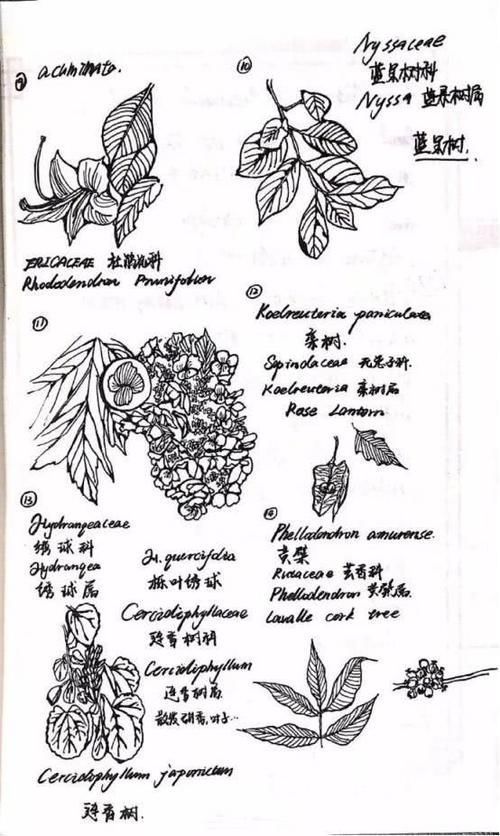 ⑨ acuminata.
ERICACEAE 杜鹃花科
Rhododendron Prunifolium
⑩
Nyssaceae
蓝果树科
Nyssa 蓝果树属
蓝果树.
⑪
Hydrangeaceae
绣球科
Hydrangea
绣球属
H. quercifolia
栎叶绣球
⑫
Koelreuteria paniculata
栾树.
Sapindaceae 无患子科.
Koelreuteria 栾树属
Rose Lantern
⑬
Cercidiphyllaceae
连香树科
Cercidiphyllum
连香树属
Cercidiphyllum japonicum
连香树.
⑭
Phellodendron amurense.
黄檗
Rutaceae 芸香科
Phellodendron 黄檗属.
Lavalle cork tree